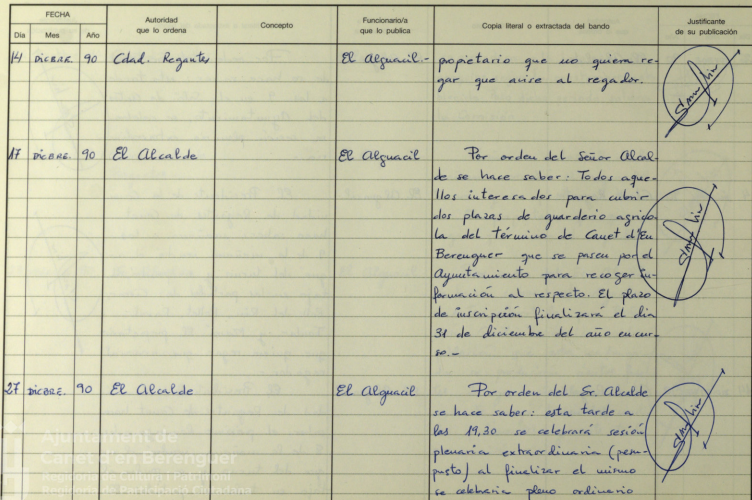 FECHA
Día Mes Año
Autoridad
que lo ordena
Concepto
Funcionario/a
que lo publica
Copia literal o extractada del bando
Justificante
de su publicación
14 DICBRE. 90 Cdad. Regantes El Alguacil.- propietario que no quiera re-
gar que avise al regador.
17 DICBRE. 90 El Alcalde El Alguacil Por orden del Señor Alcal-
de se hace saber: Todos aque-
llos interesados para cubrir
dos plazas de guarderio agríco-
la del término de Canet d'En
Berenguer que se pasen por el
Ayuntamiento para recoger in-
formación al respecto. El plazo
de inscripción finalizará el dia
31 de diciembre del año en cur-
so.-
27 DICBRE. 90 El Alcalde El Alguacil Por orden del Sr. Alcalde
se hace saber: esta tarde a
las 19,30 se celebrará sesión
plenaria extraordinaria (presu-
puesto) al finalizar el mismo
se celebraria pleno ordinario
Ajuntament de
Canet d'en Berenguer
Regidoria de Cultura i Patrimoni
Regidoria de Participació Ciutadana